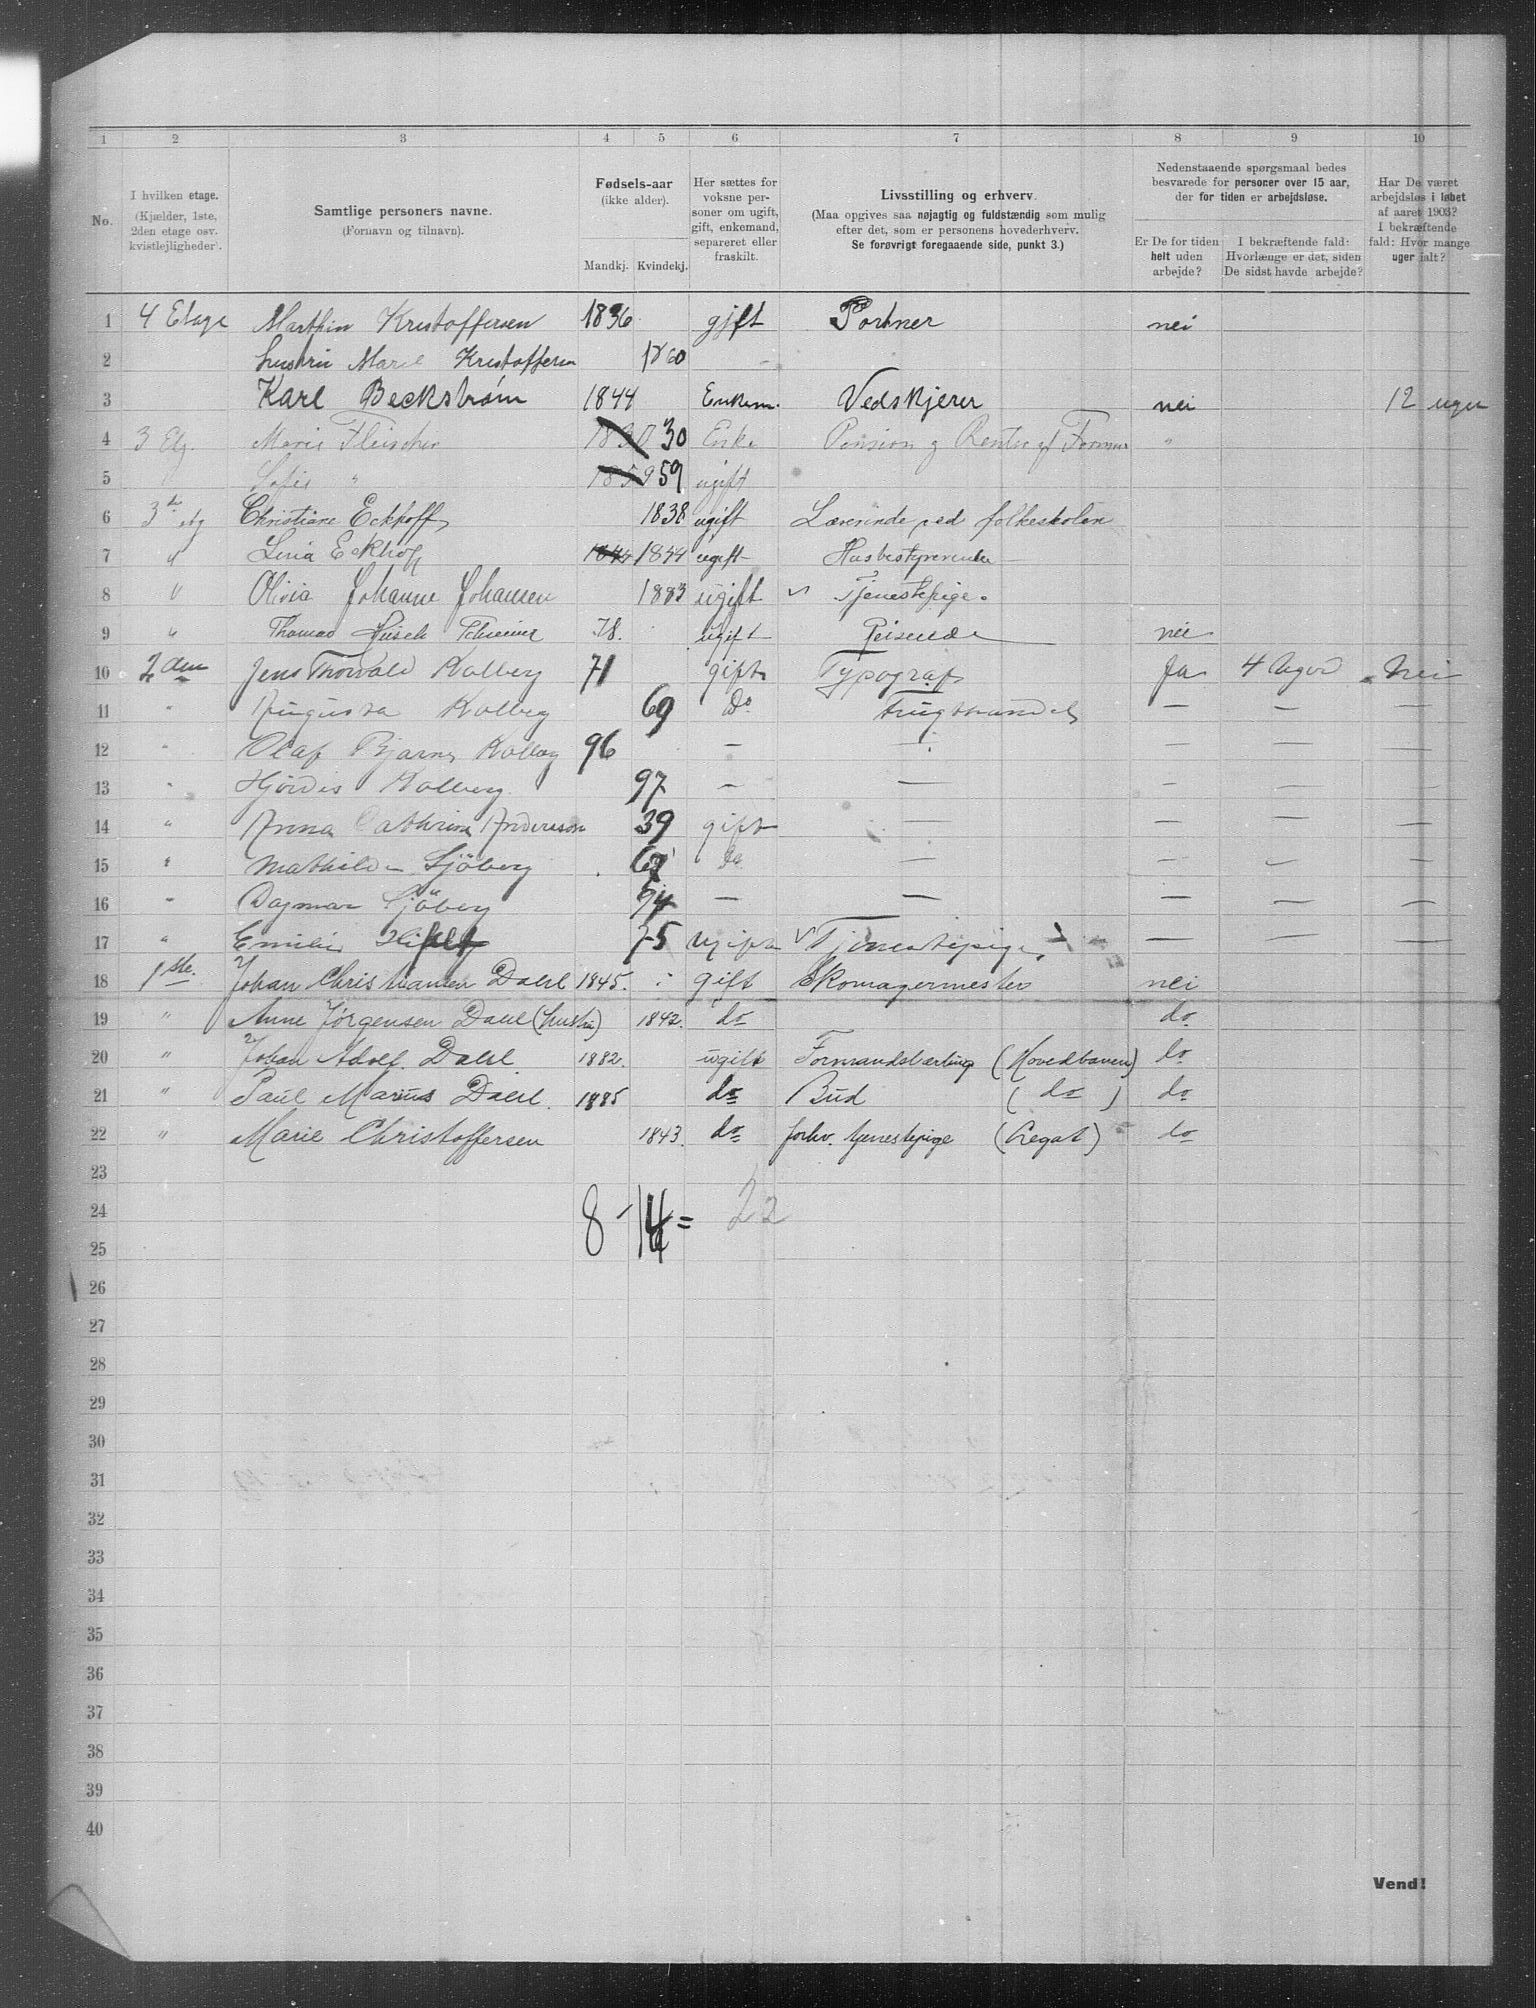 1 2 3 4 5 6 7 8 9 10
No.
I hvilken etage.
(Kjælder, 1ste,
2den etage osv.
kvistlejligheder).
Samtlige personers navne.
(Fornavn og tilnavn).
Fødsels-aar
(ikke alder).
Mandkj. Kvindekj.
Her sættes for
voksne per-
soner om ugift,
gift, enkemand,
separeret eller
fraskilt.
Livsstilling og erhverv.
(Maa opgives saa nøjagtig og fuldstændig som mulig
efter det, som er personens hovederhverv.
Se forøvrigt foregaaende side, punkt 3.)
Nedenstaaende spørgsmaal bedes
besvarede for personer over 15 aar,
der for tiden er arbejdsløse.
Er De for tiden
helt uden
arbejde?
I bekræftende fald:
Hvorlænge er det, siden
De sidst havde arbejde?
Har De været
arbejdsløs i løbet
af aaret 1903?
I bekræftende
fald: Hvor mange
uger ialt?
1 4 Etage Marthin Kristoffersen 1836 gift Portner nei
2 hustru Marie Kristoffersen 1860 -
3 Karl Beckstrøm 1844 Enkem. Vedskjerer nei 12 uger
4 3 Etg. Marie Fleischer 1830 30 Enke Pension og Renter af Formue "
5 Sofie " 1859 59 ugift
6 3die etg Christiane Eckhoff 1838 ugift Lærerinde ved folkeskolen
7 " Lina Eckhoff 1844 1844 ugift Husbestyrerinde
8 " Olivia Johanne Johansen 1883 ugift Tjenestepige.
9 " Thomas 78. ugift Reisende nei
10 2den Jens Thorvald Kolberg 71 gift Typograf Ja 4 Uger Nei
11 " Augusta Kolberg 69 Do Frugthandel — — —
12 " Olaf Bjarne Kolberg 96 — — — — —
13 " Hjørdis Kolberg 97 — — — — —
14 " Anna Cathrine Anderson 39 gift — — — —
15 " Mathilde Sjöberg do — — — —
16 " Dagmar Sjöberg 94 — — — — —
17 " Emilie 75 ugift Tjenestepige — — —
18 1ste. Johan Christiansen Dahl 1845. gift Skomagermester nei
19 " Anne Jørgensen Dahl (hustru) 1842. do do
20 " Johan Adolf Dahl 1882. ugift Formandslærling (Hovedbanen) do
21 " Paul Marius Dahl. 1885 do Bud (do) do
22 " Marie Christoffersen 1843. do forhv. tjenestepige (Legat) do
23
24 8 - 14 = 22
25
26
27
28
29
30
31
32
33
34
35
36
37
38
39
40
Vend!